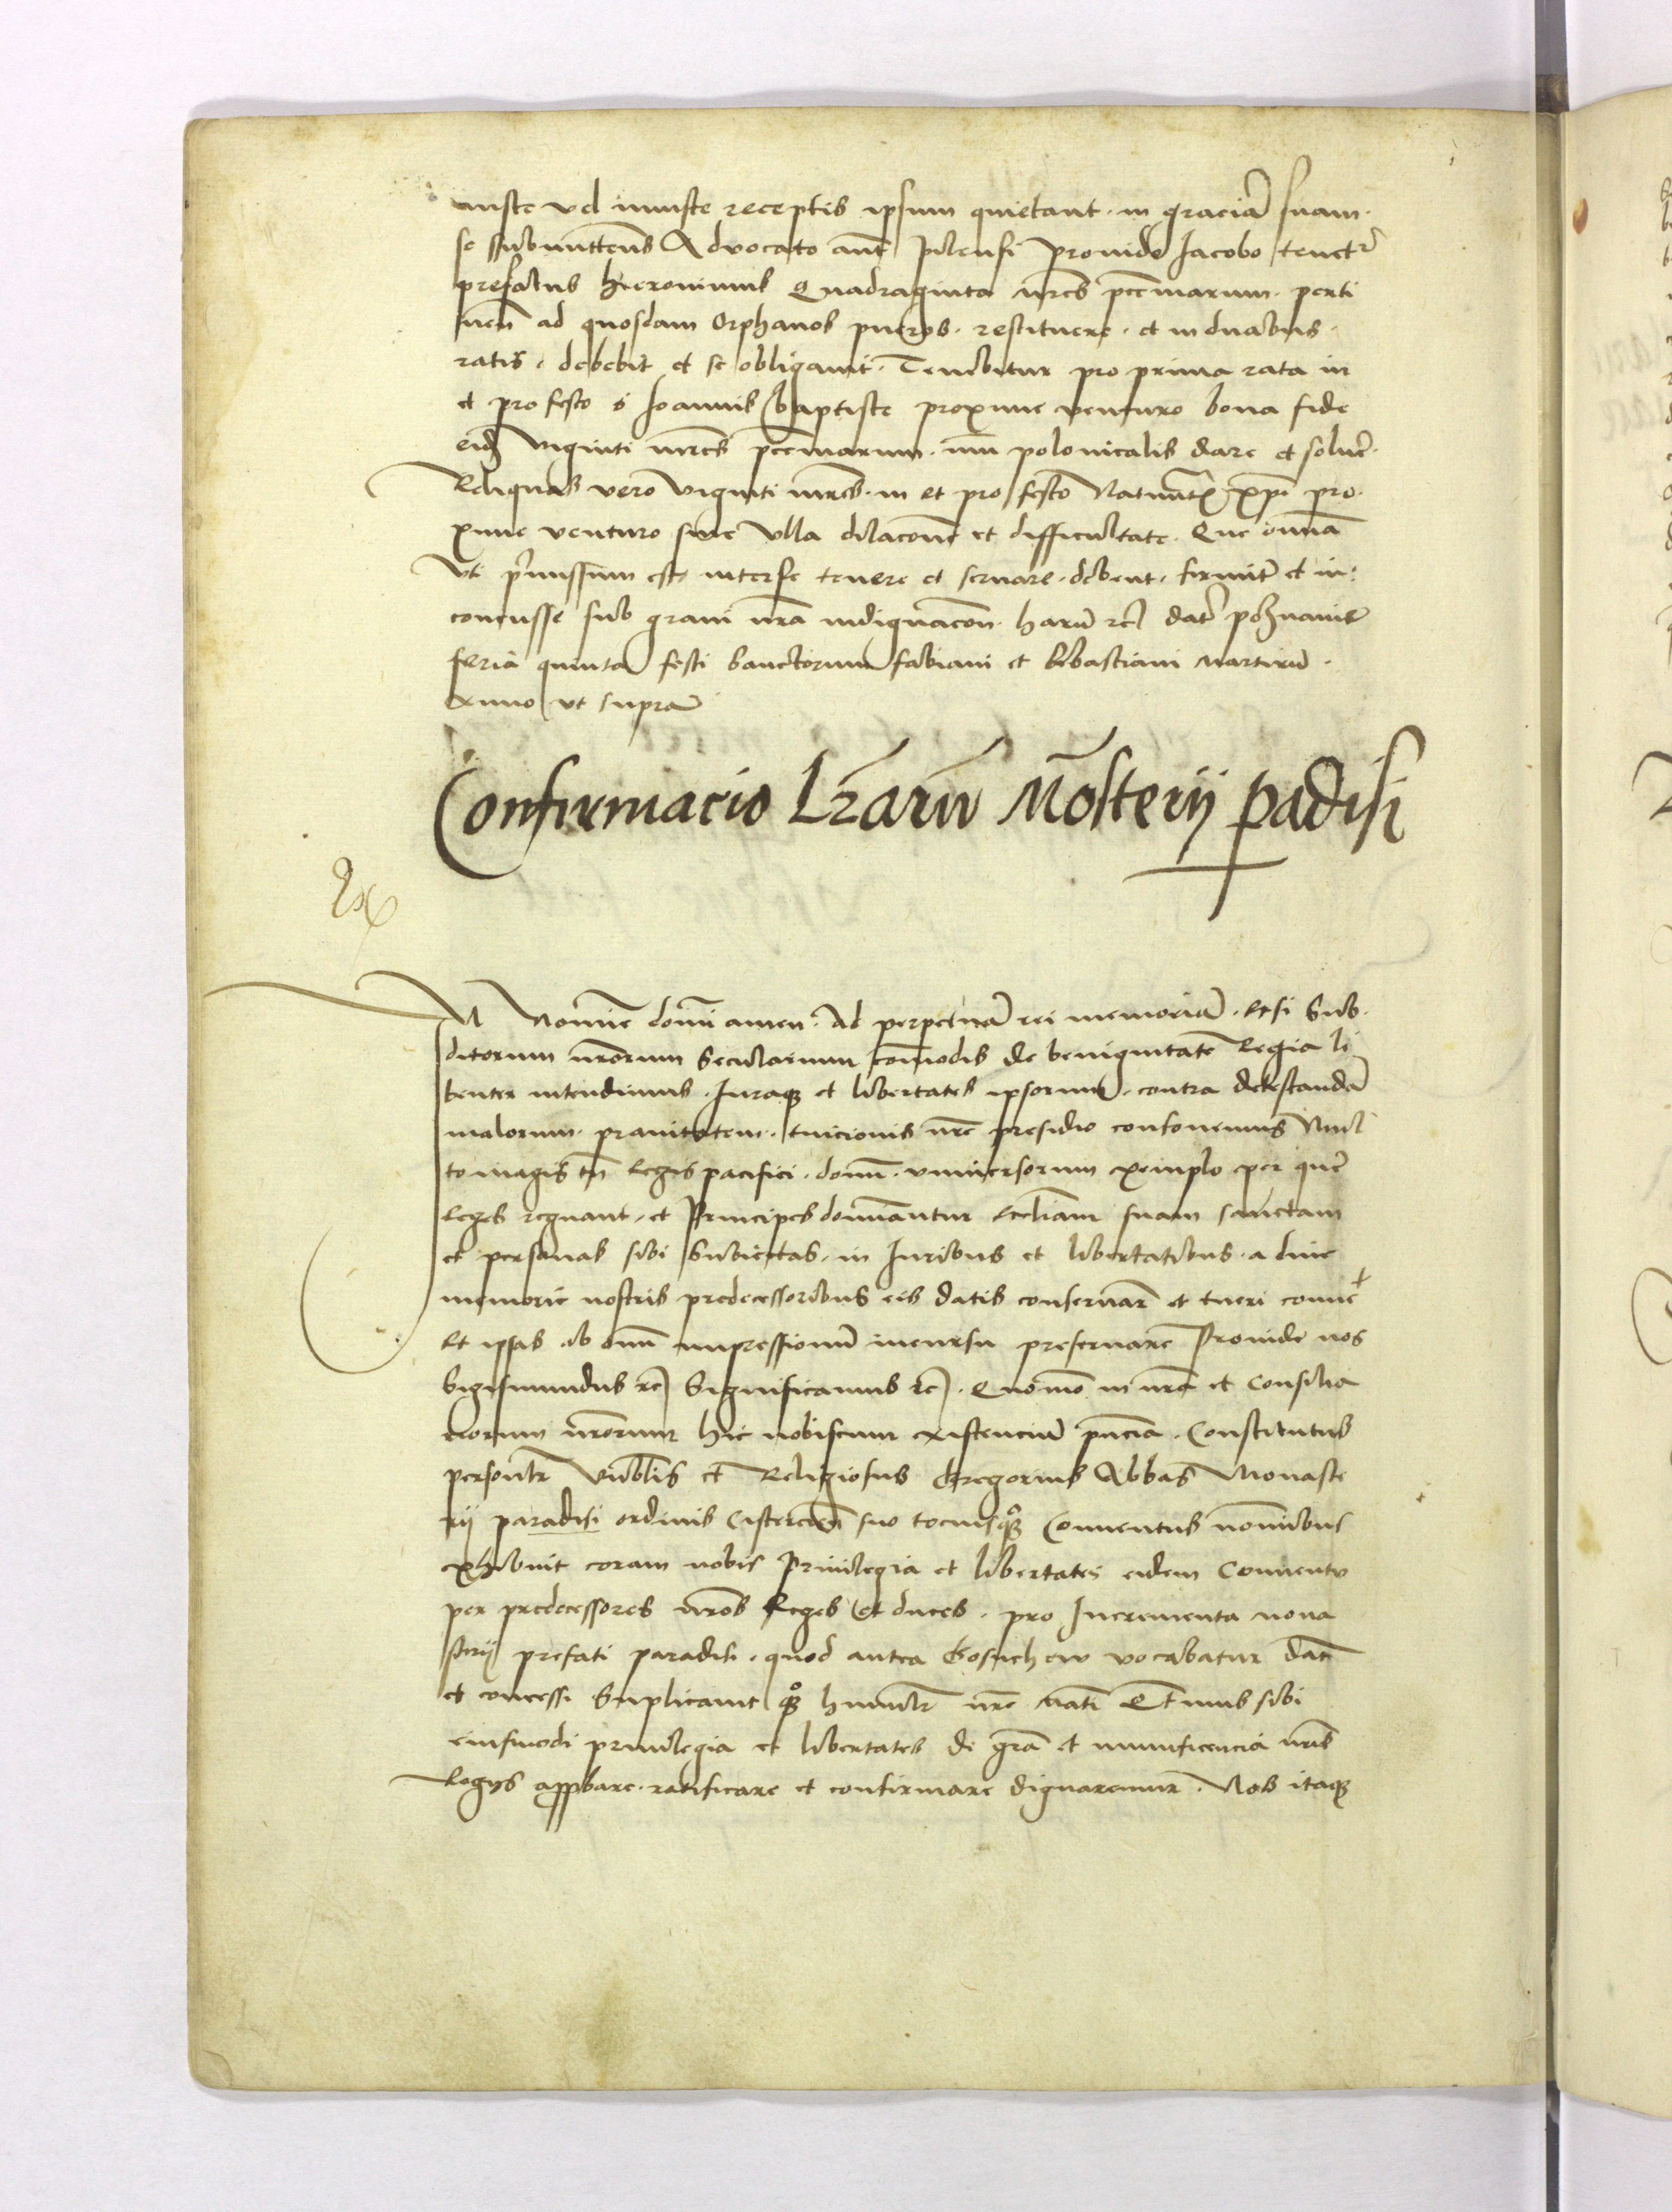 iuste vel iniuste receptis ipsum quietant. in graciā suam.
se submittens Advocato autē pilensi provido Iacobo tenetr̄
prefatus hieronimus Quadraginta mrcs pecc̄niarum. perti
nen̄ ad quosdam Orphanos pueros. restituere. et in duabus.
ratis. debebit et se obligavit. Tenebitur pro prima rata in
et pro festo s Ioannis Baptiste proxime venturo bona fide
eisd̄ viginti mrcs pecc̄niarum. nūi polonicalis dare et solver̄.
Reliquas vero viginti mrcs. in et pro festo Nativitatꝭ xp̄i pro
xime venturo sine ulla dilacōne et difficultate. Que om̄ia
Ut p̄missum est inter se tenere et servare. debent. firmit̄ et in:
concusse sub gravi nr̄a indignacōn. harū rc̄ dat̄ poznanie
feria quinta festi Sanctorum fabiani et Sebastiani martirū.
Anno ut supra
Confirmacio Lr̄arū Mōsterij ꝑadisi
IN Nomīe domī amen. Ad perpetuā rei memoriā. Etsi Sub
ditorum nr̄orum Secularium com̄odis de benignitate Regia li
benter intendimus. Iuraqꝫ et libertates ipsorum. contra detestandā
malorum. pravitatem. tuicionis nr̄e presidio confovemus Mul
to magis tn̄ Regis pacifici. domī. universorum exemplo per quē
Reges regnant. et Principes dominantur eccl̄iam suam sanctam
et personas sibi subiectas. in Iuribus et libertatibus. a dive
memorie nostris predecessoribus eis datis conservar̄ et tueri conve t
Et ipsas ab om̄i impressionū incursu preservare Proinde nos
Sigismundus rc̄ Significamus rc̄. Quomō in nr̄a et Consilia
riorum nr̄orum hic nobiscum existenciū pn̄cia. Constitutus
personalr̄ Vn̄blis et Religiosus Gregorius Abbas Monaste
rij paradisi ordinis Cistercien̄ suo tociusqꝫ Conventus nomībus
exhibuit coram nobis Privilegia et libertates eidem Conventu
per predecessores nr̄os Reges et duces. pro Incrementa mona
sterij prefati paradisi. quod antea Gosuchew vocabatur dat̄
et concessi Suplicavit qꝫ humilr̄ nr̄e mat̄i Q̄tinus sibi
eiusmodi privilegia et libertates de gr̄a et munificencia nr̄is
Regijs appbare. ratificare et confirmare dignaremur. Nos itaqꝫ